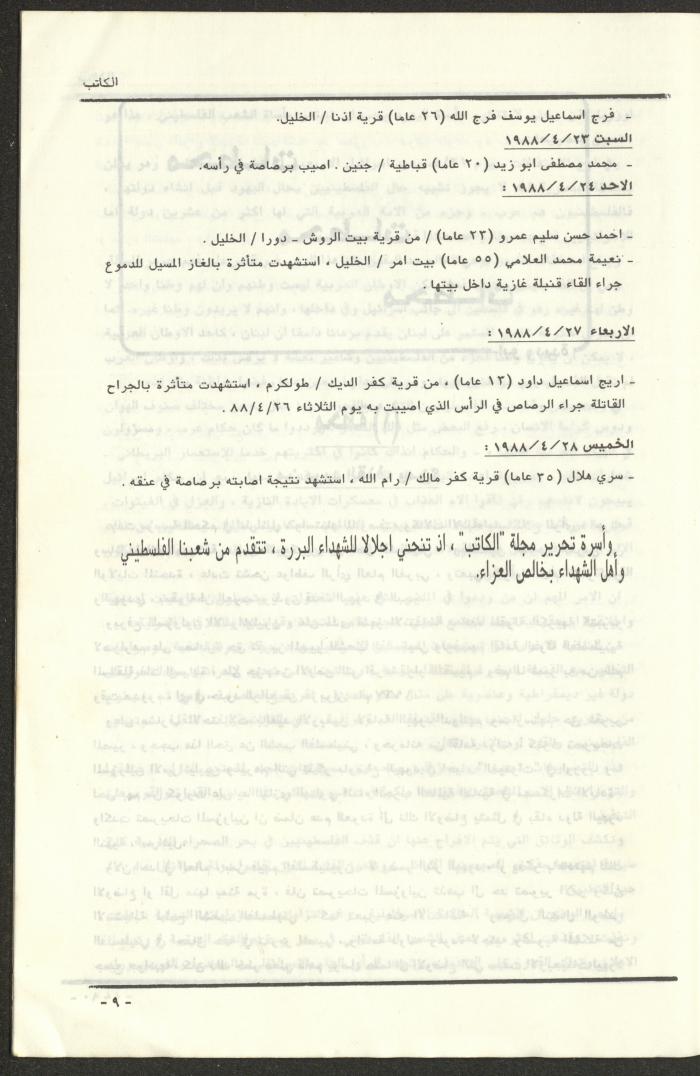 الكاتب
ـ فرج اسماعيل يوسف فرج الله (٢٦ عاما) قرية اذنا / الخليل.
السبت ١٩٨٨/٤/٢٣
ـ محمد مصطفى ابو زيد (٢٠ عاما) قباطية / جنين . اصيب برصاصة في رأسه.
الاحد ١٩٨٨/٤/٢٤ :
ـ احمد حسن سليم عمرو (٢٣ عاما) / من قرية بيت الروش ـ دورا / الخليل .
ـ نعيمة محمد العلامي (٥٥ عاما) بيت امر / الخليل ، استشهدت متأثرة بالغاز المسيل للدموع
جراء القاء قنبلة غازية داخل بيتها .
الاربعاء ١٩٨٨/٤/٢٧ :
ـ اريج اسماعيل داود (١٣ عاما) ، من قرية كفر الديك / طولكرم ، استشهدت متأثرة بالجراح
القاتلة جراء الرصاص في الرأس الذي اصيبت به يوم الثلاثاء ٨٨/٤/٢٦ .
الخميس ١٩٨٨/٤/٢٨ :
ـ سري هلال (٣٥ عاما) قرية كفر مالك / رام الله ، استشهد نتيجة اصابته برصاصة في عنقه .
وأسرة تحرير مجلة "الكاتب" ، اذ تنحني اجلالا للشهداء البررة ، تتقدم من شعبنا الفلسطيني
وأهل الشهداء بخالص العزاء.
- ٩ -